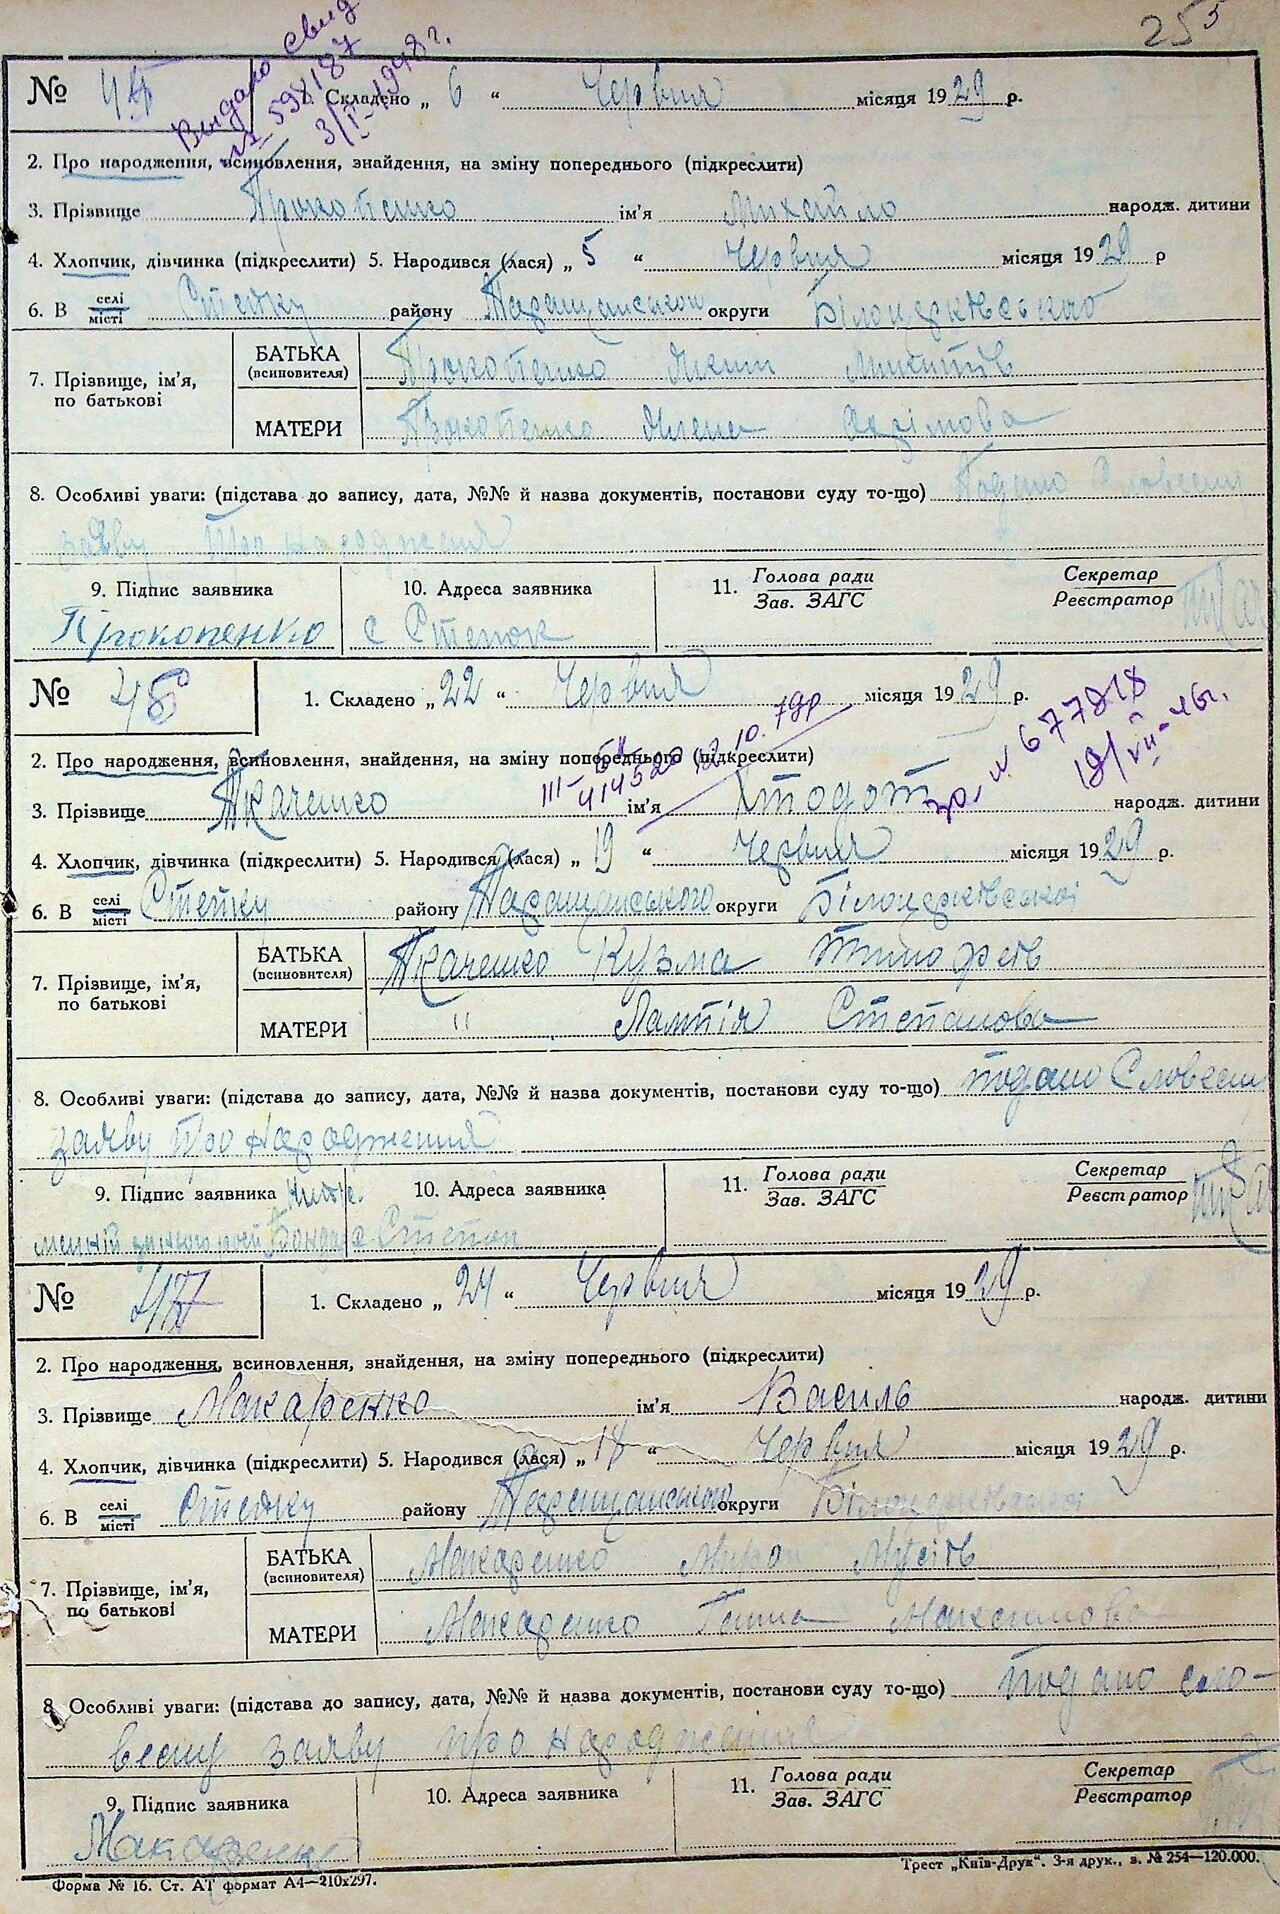 255
Выдано свид
№ 598187
3/II-1948 г.
№ 45 1. Складено „ 6 “ Червня місяця 1929 р.
2. Про народження, всиновлення, знайдення, на зміну попереднього (підкреслити)
3. Прізвище Прокопенко ім'я Михайло народж. дитини
4. Хлопчик, дівчинка (підкреслити) 5. Народився (лася) „ 5 “ Червня місяця 1929 р
6. В селі/місті Степку району Таращанського округи Білоцерківського
БАТЬКА (всиновителя) Прокопенко Микитів
7. Прізвище, ім'я, по батькові
МАТЕРИ Прокопенко Олена
8. Особливі уваги: (підстава до запису, дата, №№ й назва документів, постанови суду то-що) Подано Словесну
заяву про народження
9. Підпис заявника 10. Адреса заявника 11. Голова ради / Зав. ЗАГС Секретар / Реєстратор
Прокопенко с Степок
№ 46 1. Складено „ 22 “ Червня місяця 1929 р.
2. Про народження, всиновлення, знайдення, на зміну попереднього (підкреслити)
III-БК 414520 12.10.79р
№ 677818
19/VII-46г.
3. Прізвище Ткаченко ім'я народж. дитини
4. Хлопчик, дівчинка (підкреслити) 5. Народився (лася) „ 19 “ Червня місяця 1929 р.
6. В селі/місті Степку району Таращанського округи Білоцерківської
БАТЬКА (всиновителя) Ткаченко Кузма Тимофеїв
7. Прізвище, ім'я, по батькові
МАТЕРИ " Степанова
8. Особливі уваги: (підстава до запису, дата, №№ й назва документів, постанови суду то-що) подано Словесну
заяву про народження
9. Підпис заявника 10. Адреса заявника 11. Голова ради / Зав. ЗАГС Секретар / Реєстратор
с Степок
№ 47 1. Складено „ 24 “ Червня місяця 1929 р.
2. Про народження, всиновлення, знайдення, на зміну попереднього (підкреслити)
3. Прізвище Макаренко ім'я Василь народж. дитини
4. Хлопчик, дівчинка (підкреслити) 5. Народився (лася) „ 18 “ Червня місяця 1929 р.
6. В селі/місті Степку району Таращанського округи Білоцерківської
БАТЬКА (всиновителя) Макаренко Мусіїв
7. Прізвище, ім'я, по батькові
МАТЕРИ Макаренко Ганна Максимова
8. Особливі уваги: (підстава до запису, дата, №№ й назва документів, постанови суду то-що) подано сло-
весну заяву про народження
9. Підпис заявника 10. Адреса заявника 11. Голова ради / Зав. ЗАГС Секретар / Реєстратор
Макаренко
Форма № 16. Ст. АТ формат А4—210х297. Трест „Київ-Друк“. 3-я друк., з. № 254—120.000.